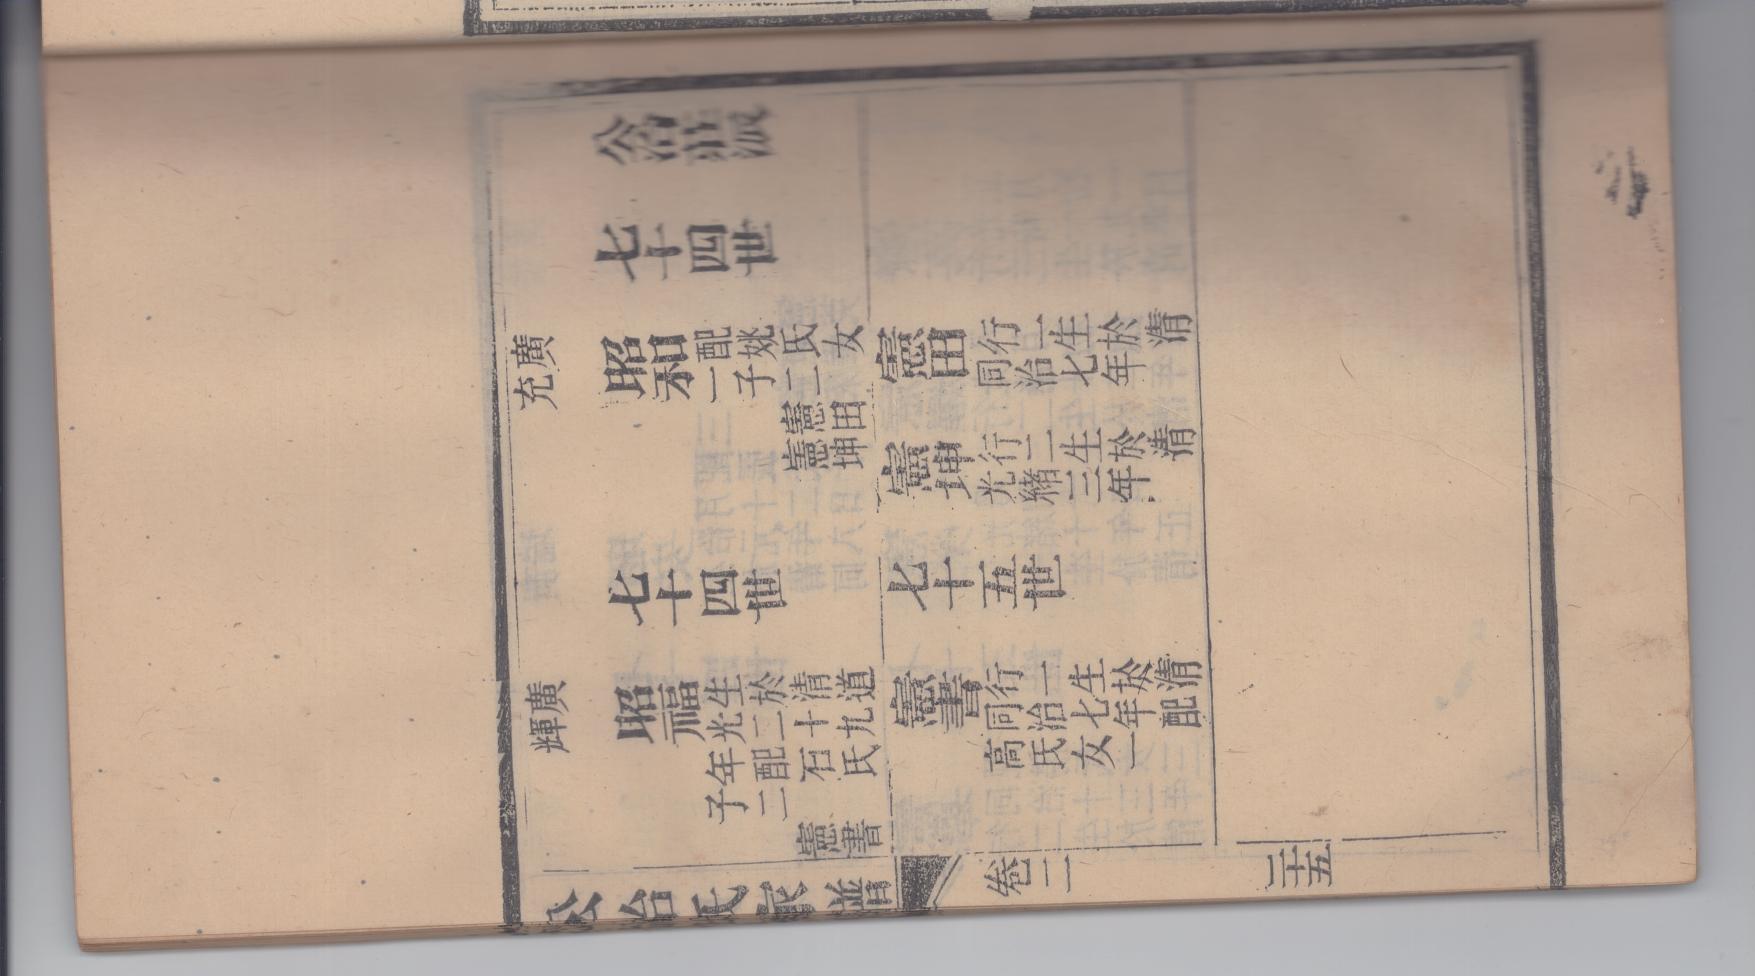 公冶莊派
七十四世
廣充
昭和
配姚氏女
一子二
憲田
憲坤
憲田
行一生於清
同治七年
憲坤
行二生於清
光緒三年
七十四世
七十五世
廣輝
昭福
生於清道
光二十九
年配石氏
子二
憲書
憲書
行一生於清
同治七年配
高氏女一
公冶氏家譜
卷二
二十五